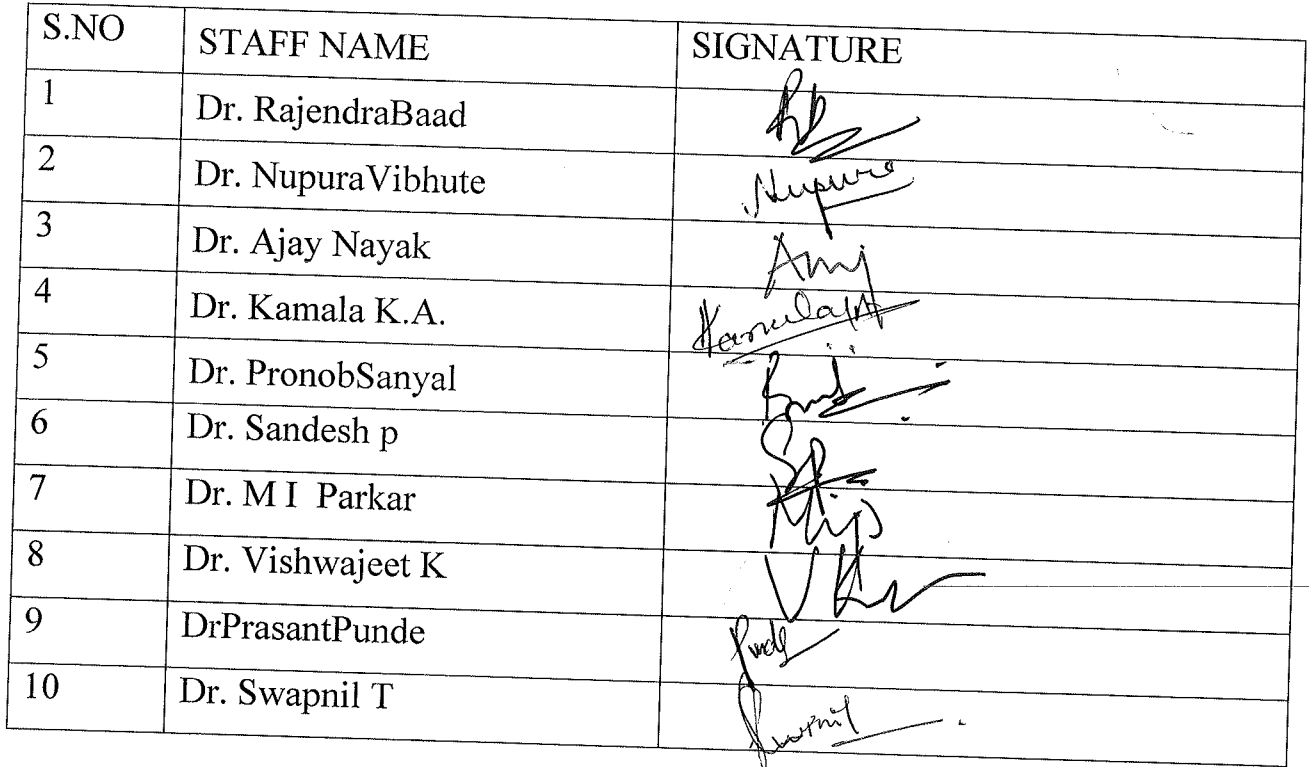 S.NO STAFF NAME SIGNATURE
1 Dr. RajendraBaad
2 Dr. NupuraVibhute Nupura
3 Dr. Ajay Nayak
4 Dr. Kamala K.A. Kamala
5 Dr. PronobSanyal
6 Dr. Sandesh p
7 Dr. M I Parkar
8 Dr. Vishwajeet K
9 DrPrasantPunde Punde
10 Dr. Swapnil T Swapnil